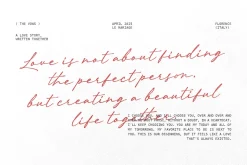 ( THE VOWS )
APRIL 2025
LE MARIAGE
FLORENCE
(ITALY)
A LOVE STORY,
WRITTEN TOGETHER
Love is not about finding
the perfect person,
but creating a beautiful
life together.
I CHOOSE YOU, AND I'LL CHOOSE YOU, OVER AND OVER AND
WITHOUT A DOUBT, IN A HEARTBEAT,
I'LL KEEP CHOOSING YOU. YOU ARE MY TODAY AND ALL OF
MY TOMORROWS, MY FAVORITE PLACE TO BE IS NEXT TO
YOU. THIS IS OUR BEGINNING, BUT IT FEELS LIKE A LOVE
THAT'S ALWAYS EXISTED.